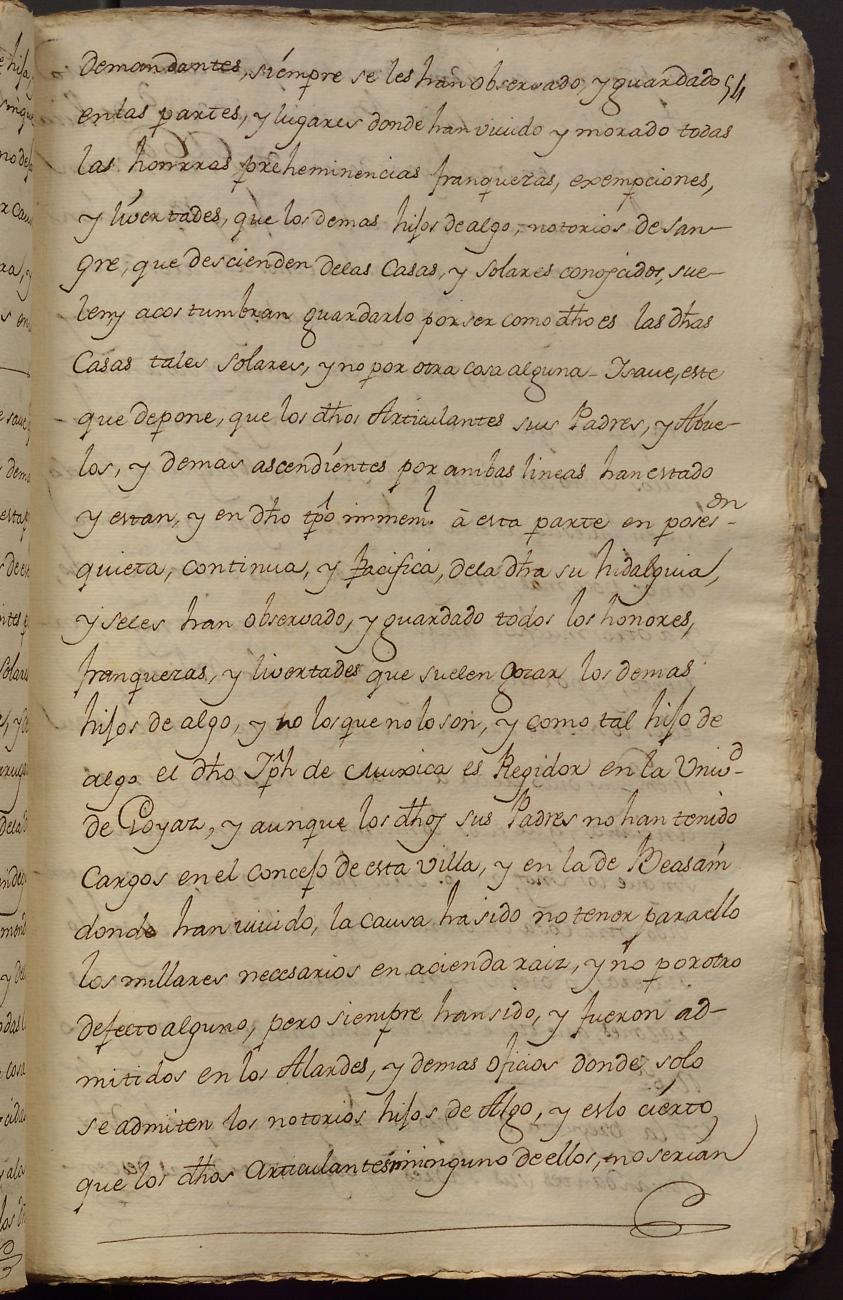 demandantes, siempre se les han observado, y guardado 54
enlas partes, y lugares donde han vivido y morado todas
las honrras preheminencias franquezas, exempciones,
y livertades, que los demas hijos de algo, notorios de san-
gre, que descienden delas Casas, y solares conozidos, sue-
len y acostumbran guardarlo por ser como dho es las dhas
Casas tales solares, y no por otra cosa alguna - Isave, este
que depone, que los dhos Articulantes sus Padres, y Abue-
los, y demas ascendientes por ambas lineas han estado
y estan, y en dho tpo immeml. à esta parte en poses-on
quieta, continua, y Pacifica, dela dha su hidalguia,
y seles han observado, y guardado todos los honores,
franquezas, y livertades que suelen gozar los demas
hijos de algo, y no los que no lo son, y como tal hijo de
algo el dho Jph de Muxica es Regidor en la Univd-
de Goyaz, y aunque los dhos sus Padres no han tenido
Cargos en el Concejo de esta Villa, y en la de Beasain
donde han vivido, la causa ha sido no tener para ello
los millares necesarios en acienda raiz, y no por otro
defecto alguno, pero siempre han sido, y fueron ad-
mitidos en los Alardes, y demas oficios donde solo
se admiten los notorios hijos de Algo, y eslo cierto
que los dhos Articulantes ni ninguno de ellos, no serian